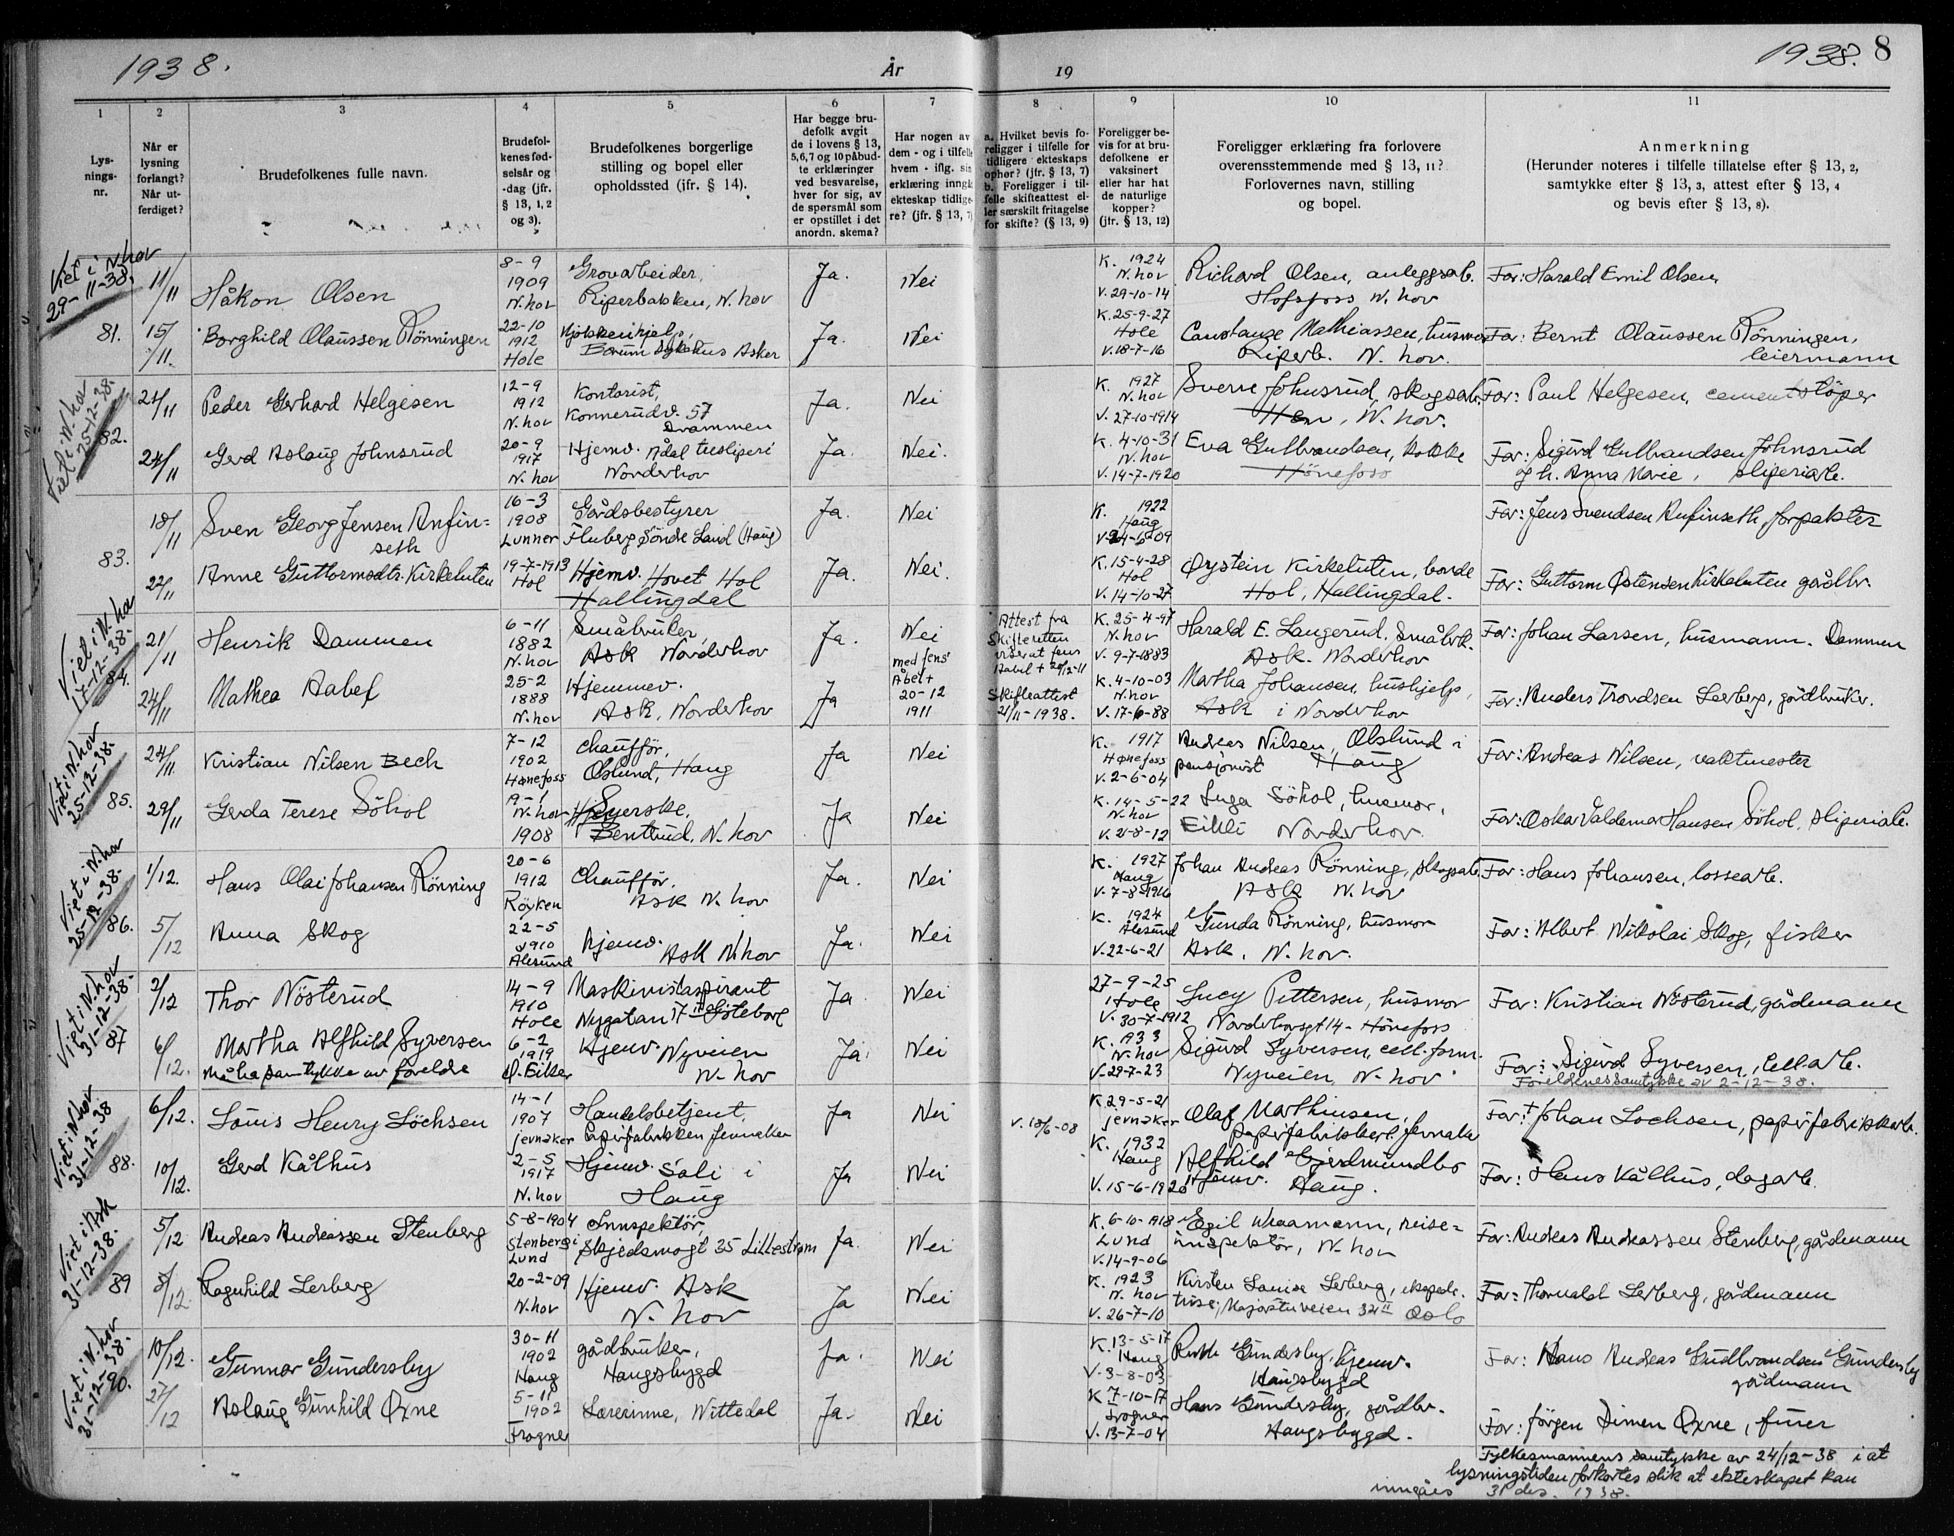 1938.
År
19
1938. 8
1
2
3
4
5
6
7
8
9
10
11
Lys-
nings-
nr.
Når er
lysning
forlangt?
Når ut-
ferdiget?
Brudefolkenes fulle navn.
Brudefol-
kenes fød-
selsår og
-dag (jfr.
§ 13, 1, 2
og 3).
Brudefolkenes borgerlige
stilling og bopel eller
opholdssted (jfr. § 14).
Har begge bru-
defolk avgit
de i lovens § 13,
5,6,7 og 10 påbud-
te erklæringer
ved besvarelse,
hver for sig, av
de spørsmål som
er opstillet i det
anordn. skema?
Har nogen av
dem - og i tilfelle
hvem - iflg. sin
erklæring inngå
ekteskap tidlige-
re? (jfr. § 13, 7)
a. Hvilket bevis fo-
religger i tilfelle for
tidligere ekteskaps
ophør? (jfr. § 13, 7)
b. Foreligger i til-
felle skifteattest el-
ler særskilt fritagelse
for skifte? (§ 13, 9)
Foreligger be-
vis for at bru-
defolkene er
vaksinert
eller har hat
de naturlige
kopper?
(jfr. § 13, 12)
Foreligger erklæring fra forlovere
overensstemmende med § 13, 11?
Forlovernes navn, stilling
og bopel.
Anmerkning
(Herunder noteres i tilfelle tillatelse efter § 13, 2,
samtykke efter § 13, 3, attest efter § 13, 4
og bevis efter § 13, 8).
Viet i N.hov
29-11-38.
81.
11/11
Håkon Olsen
8-9
1909
N.hov
Grovarbeider,
Riperbakken, N. hov
Ja.
Nei
K. 1924
N.hov
V. 29-10-14
Richard Olsen, anleggsarb.
Hofsfoss N. hov
Far: Harald Emil Olsen,
15/11.
Borghild Olaussen Rönningen
22-10
1912
Hole
Kjökkenhjelp,
Bærum Sykehus Asker
Ja.
Nei
K. 25-9-27
Hole
V. 18-7-16
Constanze Mathiassen, husmor
Riperb. N. hov.
Far: Bernt Olaussen Rönningen,
leiermann
Viet i N.hov
25-12-38.
82.
21/11
Peder Gerhard Helgesen
12-9
1912
N. hov
Kontorist,
Konnerudv. 57
Drammen
Ja.
Nei
K. 1927
N. hov
V. 27-10-1914
Sverre Johnsrud, skogsarb.
Hen, N. hov.
Far: Paul Helgesen, cementstöper
24/11
Gerd Aslaug Johnsrud
20-9
1917
N. hov
Hjemv. Ådal tresliperi
Norderhov
Ja.
Nei.
K. 4-10-31
N. hov
V. 14-7-1920
Eva Gulbrandsen, kokke
Hönefoss
Far: Sigurd Gulbrandsen Johnsrud
og h. Anna Marie, sliperiarb.
83.
18/11
Sven Georg Jensen Anfin=
seth
16-3
1908
Lunner
Gårdsbestyrer
Fluberg Söndre Land (Haug)
Ja.
Nei
K. 1922
Haug
V. 24-6-09
Far: Jens Svendsen Anfinseth, forpakter
22/11
Anne Guttormsdtr. Kirkeluten
19-7-1913
Hol
Hjemv. Hovet Hol
Hallingdal
Ja.
Nei.
K. 15-4-28
Hol
V. 14-10-27
Øystein Kirkeluten, bonde
Hol, Hallingdal.
Far: Guttorm Østensen Kirkeluten gårdbr.
Viet i N. hov
17-12-38.
84.
21/11
Henrik Dammen
6-11
1882
N.hov
Småbruker,
Ask Norderhov
Ja.
Nei
Attest fra
Skifteretten
viser at Jens
Aabel + 20/12-11
K. 25-4-97
N. hov
V. 9-7-1883
Harald E. Langerud, Småbrk.
Ask. Norderhov
Far: Johan Larsen, husmann. Dammen
24/11
Mathea Aabel
25-2
1888
N. hov
Hjemmev.
Ask, Norderhov
Ja
med Jens
Åbel +
20-12
1911
Skifteattest
21/11-1938.
K. 4-10-03
N.hov
V. 17-6-88
Martha Johansen, hushjelp,
Ask i Norderhov
Far: Anders Trondsen Lerberg, gårdbruker.
Viet i N.hov
25-12-38.
85.
24/11
Kristian Nilsen Bech
7-12
1902
Hønefoss
Chauffør,
Ølslund, Haug
Ja
Nei
K. 1917
Hønefoss
V. 2-6-04
Andreas Nilsen, Ølslund i
pensjonist Haug
Far: Andreas Nilsen, vaktmester
29/11
Gerda Terese Söhol
19-1
N. hov
1908
Syerske,
Bentrud, N. hov
Ja
Nei
K. 14-5-22
N. hov
V. 21-8-12
Inga Söhol, husmor,
Eikli Norderhov.
Far: Oskar Valdemar Hansen Söhol, sliperiarb.
Viet i N.hov
25-12-38.
86.
1/12.
Hans Olai Johansen Rönning
20-6
1912
Röyken
Chauffør,
Ask N. hov
Ja.
Nei
K. 1927
Haug
V. 7-8-1916
Johan Andreas Rönning, skogsarb.
Ask N. hov
Far: Hans Johansen, lossearb.
5/12
Anna Skog
22-5
1910
Ålesund
Hjemv.
Ask N. hov
Ja.
Nei
K. 1924
Ålesund
V. 22-6-21
Gunda Rönning, husmor
Ask, N. hov.
Far: Albert Nikolai Skog, fisker
Viet i N.hov
31-12-38.
87
2/12
Thor Nösterud
14-9
1910
Hole
Maskinistaspirant
Nygatan 17 Göteborg
Ja.
Nei
27-9-25
Hole
V. 30-7-1912
Lucy Pettersen, husmor
Norderhovsgt 14 - Hönefoss
Far: Kristian Nösterud, gårdmann
6/12.
Martha Alfhild Syversen
Må ha samtykke av foreldre
6-2
1919
Ø. Eiker
Hjemv. Nyveien
N. hov
Ja
Nei
K. 1933
N. hov
V. 29-7-23
Sigurd Syversen, cell. form.
Nyveien, N. hov
Far: Sigurd Syversen, cell. arb.
Foreldrenes samtykke av 2-12-38.
Viet i N.hov
31-12-38
88.
6/12.
Louis Henry Löchsen
14-1
1907
Jevnaker
Handelsbetjent,
Papirfabrikken Jevnaker
Ja
Nei
V. 18/6-08
K. 29-5-21
Jevnaker
Olaf Marthinsen,
papirfabrikkarb. Jevnaker
Far: + Johan Lochsen, papirfabrikkarb.
10/12.
Gerd Kålhus
2-5
1917
N. hov
Hjemv. Sali i
Haug
Ja
Nei
K. 1932
Haug
V. 15-6-1920
Alfhild Gjerdmundbo
Hjemv. Haug.
Far: Hans Kålhus, dagarb.
Viet i Ask
31-12-38.
89
5/12
Andreas Andreassen Stenberg
5-8-1904
Stenberg i
Lund
Innspektör,
Skjedsmogt 35 Lilleström
Ja.
Nei
K. 6-10-1918
Lund
V. 14-9-06
Egil Wraamann, reise=
innspektör, N. hov
Far: Andreas Andreassen Stenberg, gårdmann
8/12.
Ragnhild Lerberg
20-2-09
N.hov
Hjemv. Ask
N. hov
Ja
Nei
K. 1923
N. hov
V. 26-7-10
Kirsten Louise Lerberg, ekspedi-
trise, Majorstuveien 32 II Oslo
Far: Thorvald Lerberg, gårdmann
Viet i N.hov
31-12-38.
90.
10/12.
Gunnar Gundersby
30-11
1902
Haug
gårdbruker,
Haugsbygd
Ja.
Nei
K. 13-5-17
Haug
V. 3-8-03
Ruth Gundersby, hjemv.
Haugsbygd
Far: Hans Andreas Gudbrandsen Gundersby
gårdmann
27/12
Aslaug Gunhild Øxne
5-11
1902
Frogner
Lærerinne, Nittedal
Ja.
Nei
K. 7-10-17
Frogner
V. 13-7-04
Hans Gundersby, gårdbr.
Haugsbygd.
Far: Jörgen Simen Øxne, furer
Fylkesmannens samtykke av 24/12-38 i at
lysningstiden forkortes slik at ekteskapet kan
inngåes 31 des. 1938.